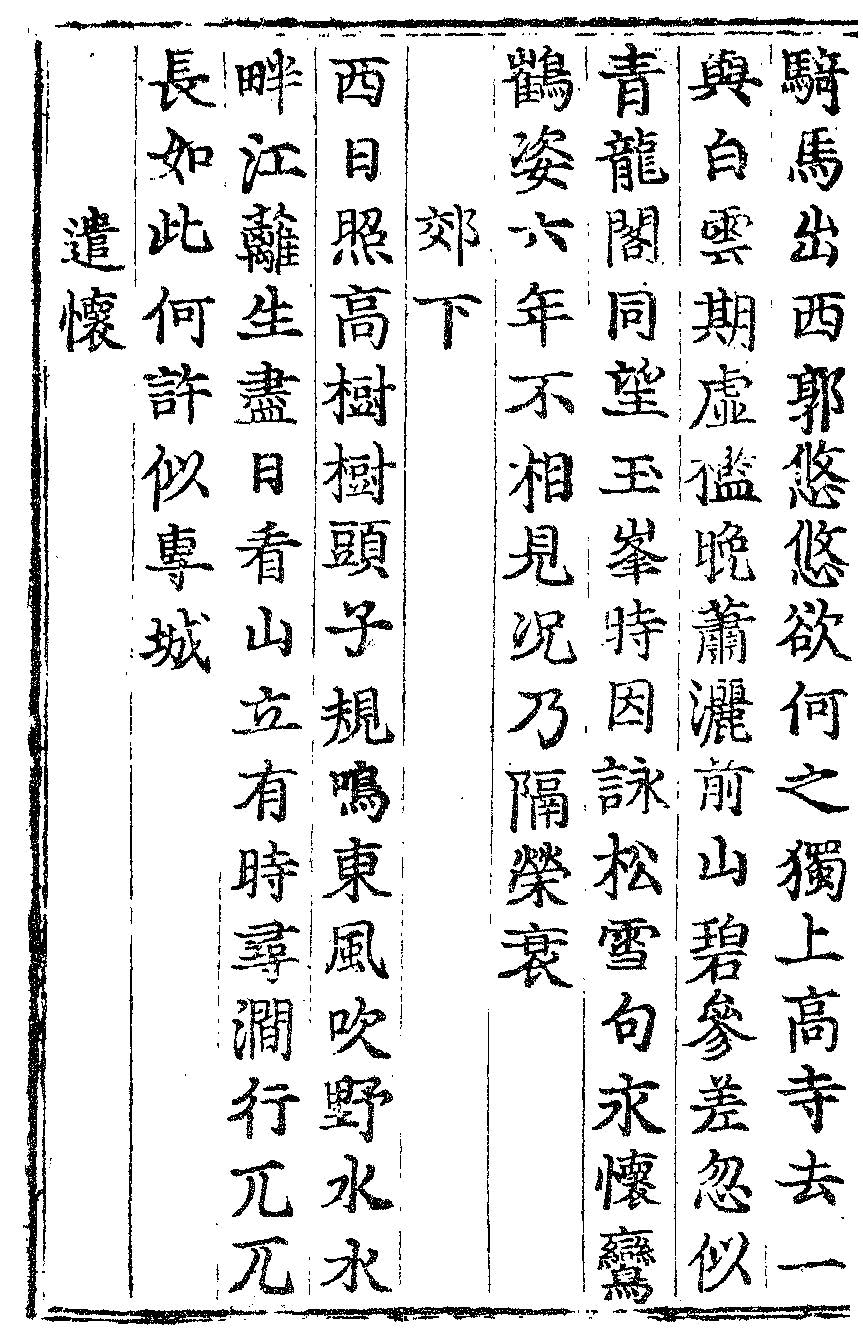 騎馬出西郭悠悠欲何之獨上高寺去一
與白雲期虛檻晚蕭灑前山碧參差忽似
青龍閣同望玉峯時因詠松雪句永懷鸞
鶴姿六年不相見況乃隔榮衰
郊下
西日照高樹樹頭子規鳴東風吹野水水
畔江蘺生盡日看山立有時尋澗行兀兀
長如此何許似專城
遣懷